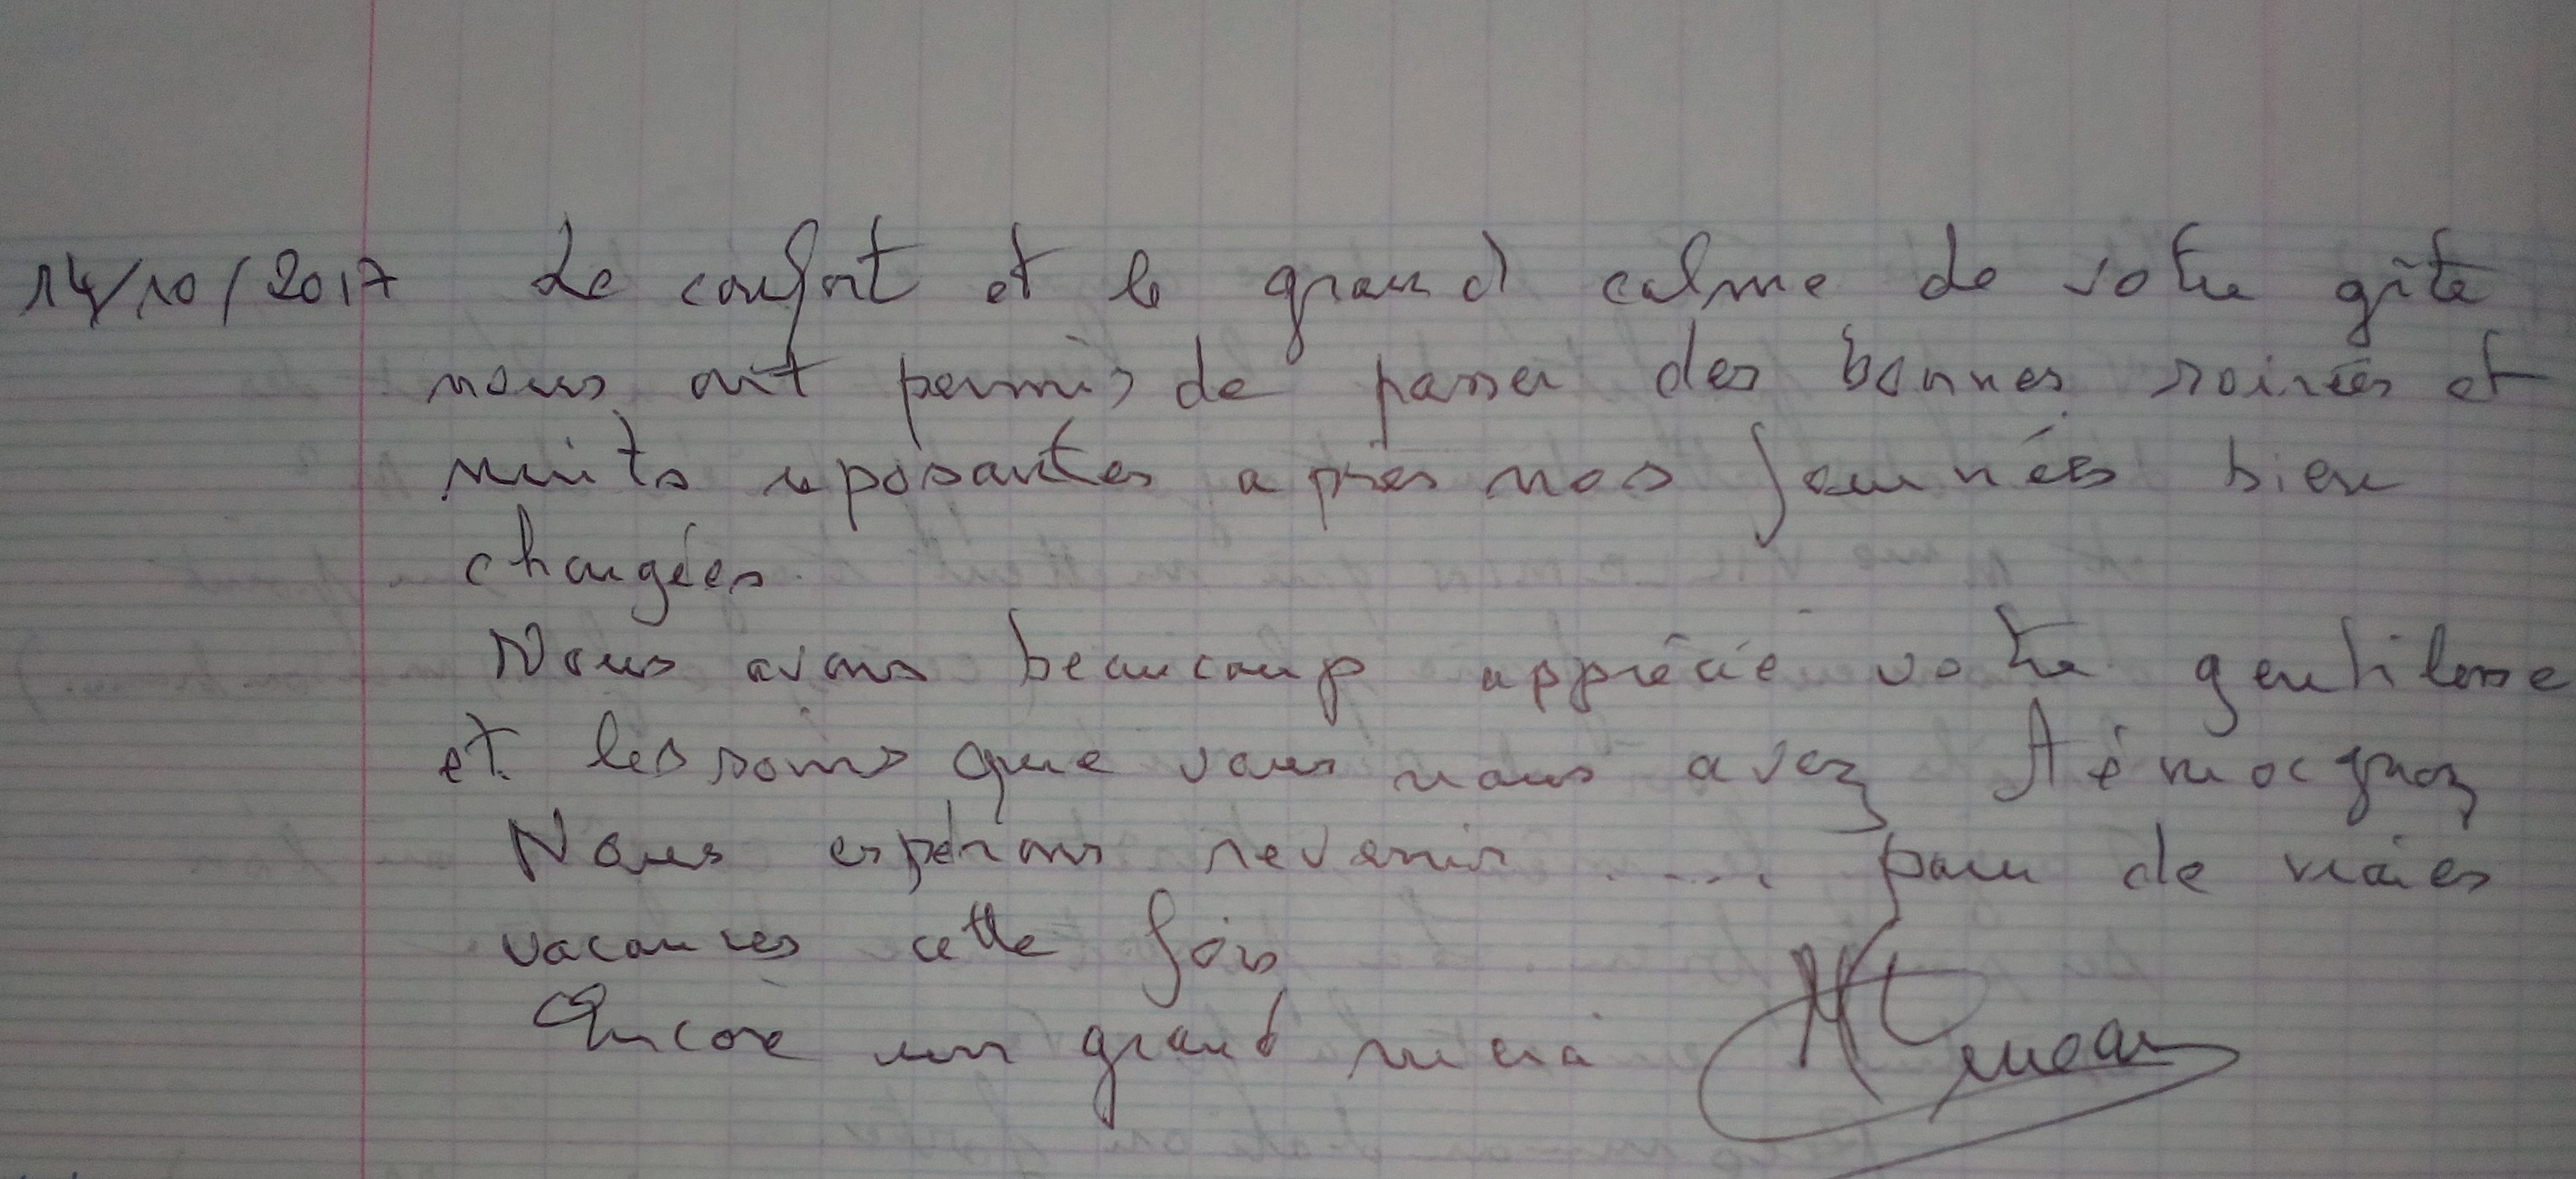 14/10/2017 Le confort et le grand calme de votre gîte
nous ont permis de passer des bonnes soirées et
nuits reposantes après nos journées bien
chargées.
Nous avons beaucoup apprécié votre gentilesse
et les soins que vous nous avez témoignez
Nous espérons revenir .... pour de vraies
vacances cette fois
Encore un grand merci